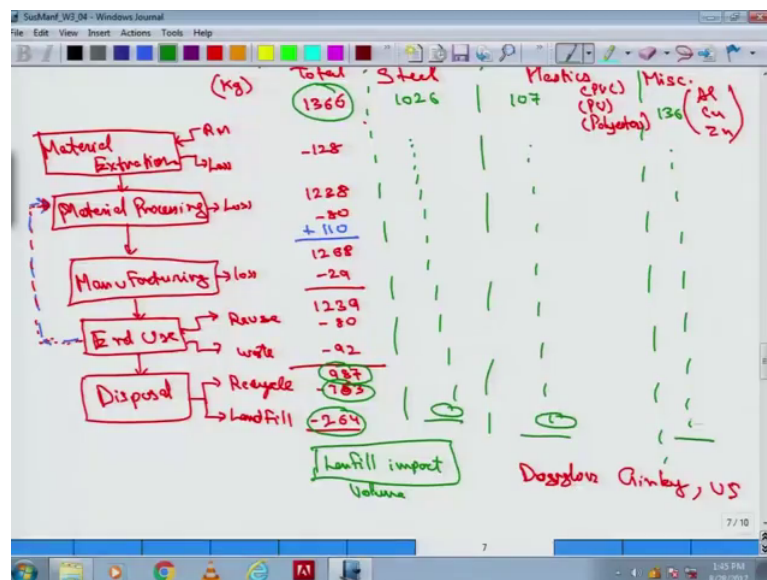 SusManf_W3_04 - Windows Journal
File Edit View Insert Actions Tools Help
(Kg) Total Steel Plastics Misc.
1366 1026 107 (PVC) (PU) (Polyester) 136 (Al Cu Zn)
Material Extraction
Rm
Loss
-128
Material Processing Loss
1238
-80
+110
1268
Manufacturing Loss
-29
1239
End Use
Reuse
-80
Waste
-92
987
Disposal
Recycle
Landfill
-264
Lanfill impact
Volume
US
7 / 10
7
1:45 PM
8/28/2017